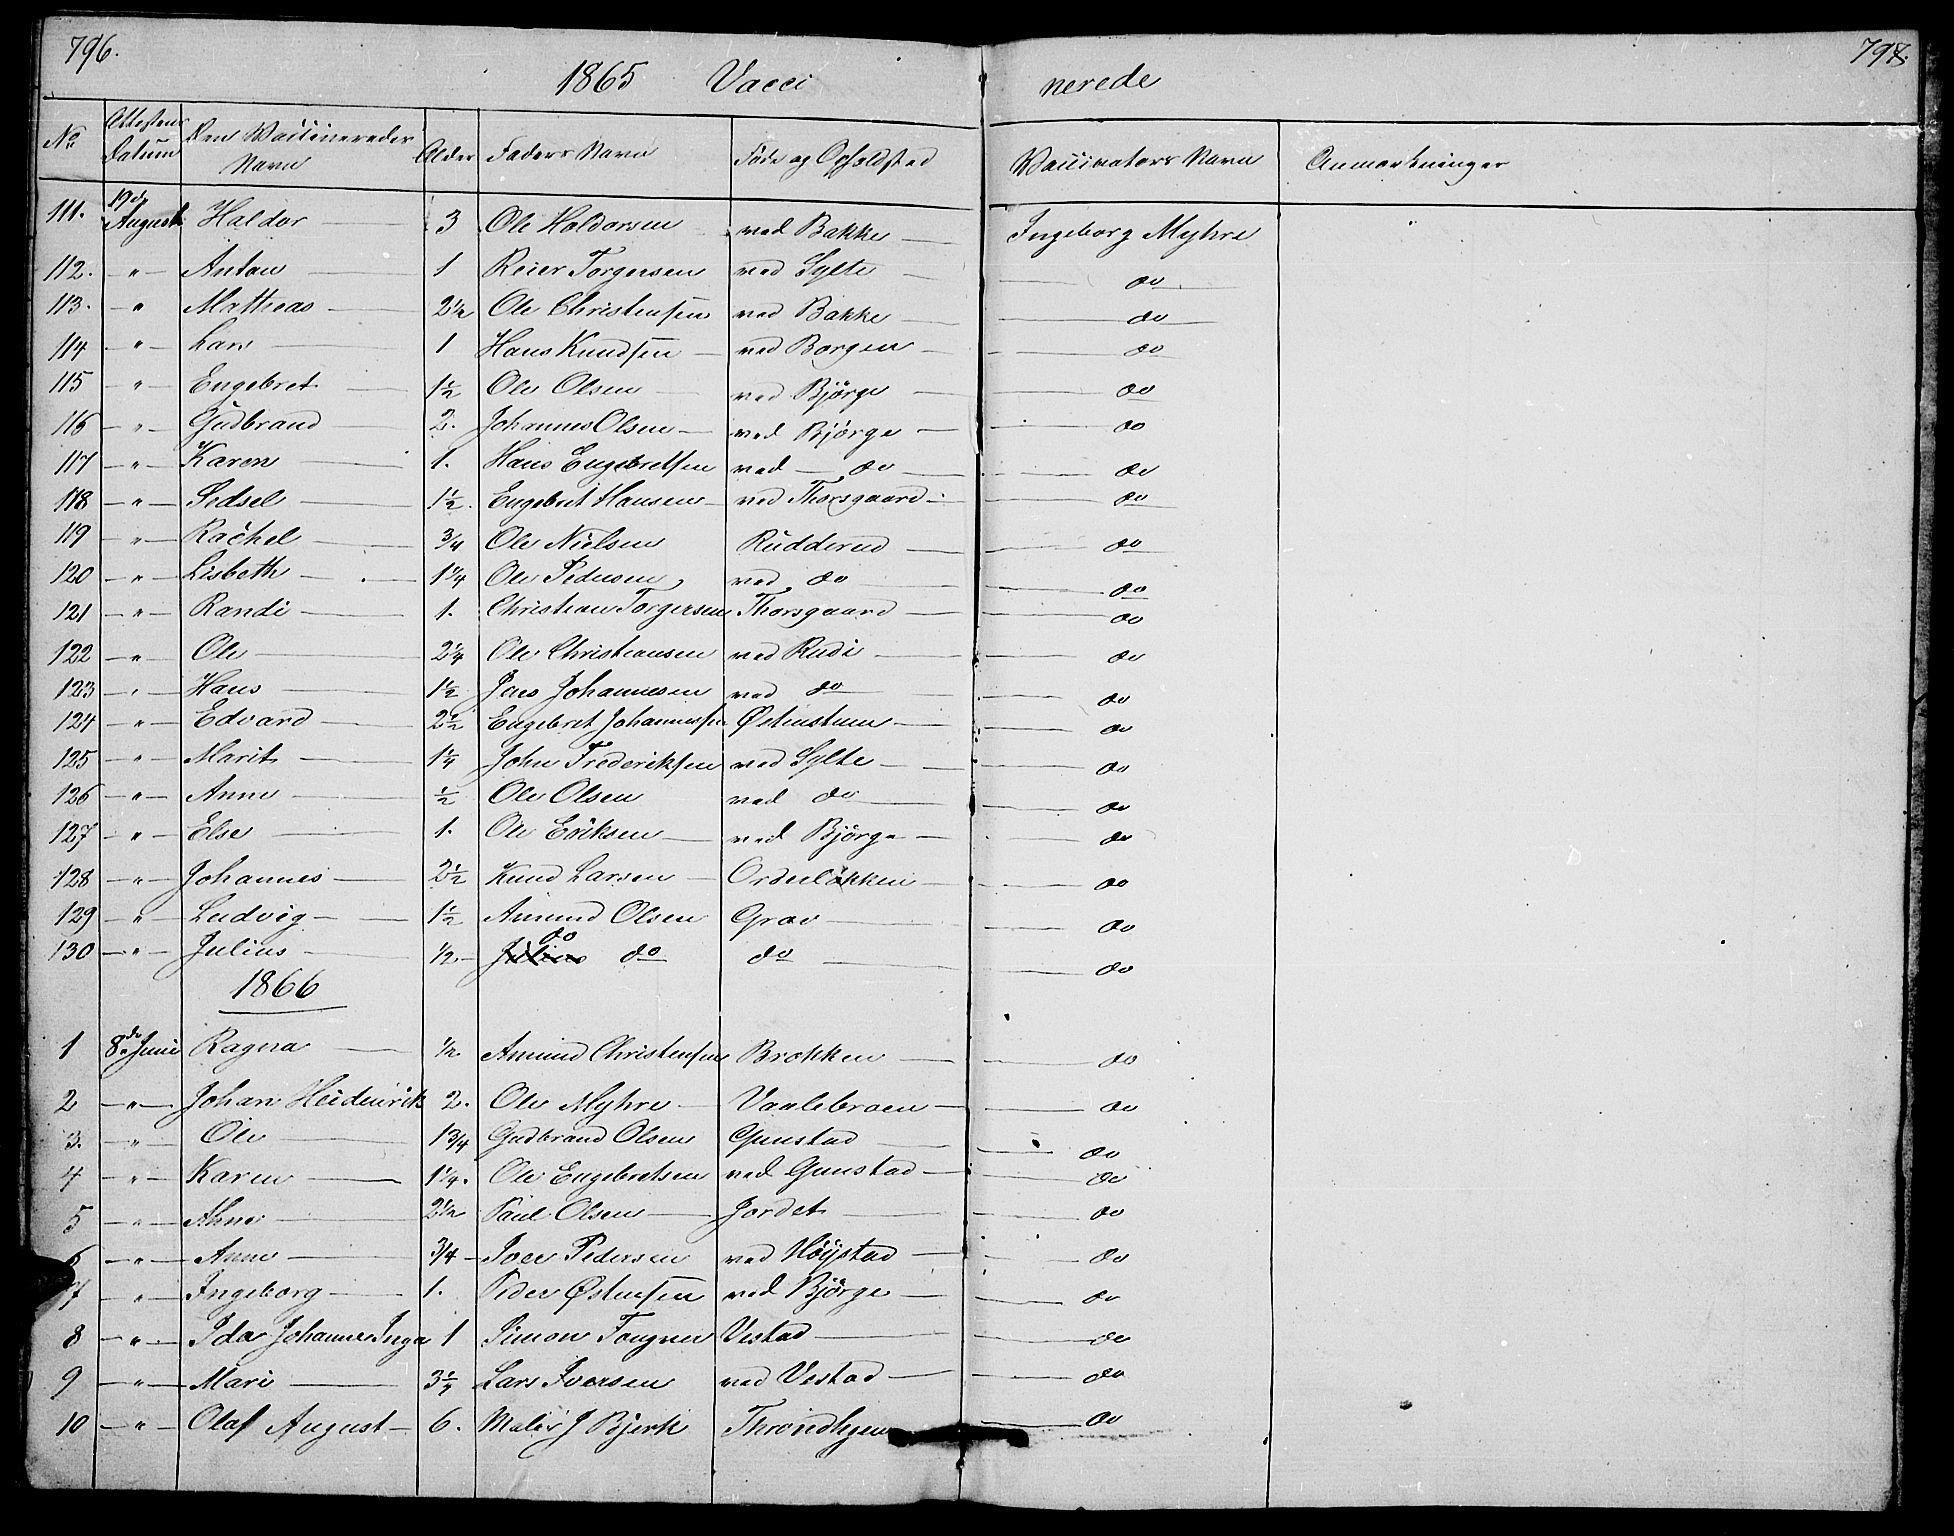 796. 797.
1865 Vaccinerede
No Attestens Datum Den Vaccineredes Navn Alder Faders Navn Føde og Opholdsted Vaccinators Navn Anmærkninger
111. 19de August Haldor 3 Ole Haldorsen ved Bakke Ingeborg Myhre
112. " Anton 1 Reier Torgersen ved Sylte do
113. " Matheas 2½ Ole Christensen ved Bakke do
114 " Lars 1 Hans Knudsen ved Borgen do
115 " Engebret 1½ Ole Olsen ved Bjørge do
116 " Gudbrand 2. Johannes Olsen ved Bjørge do
117 " Karen 1. Hans Engebretsen ved do do
118 " Sidsel 1½. Engebret Hansen ved Thorsgaard do
119 " Rachel ¾ Ole Nielsen Rudderud do
120 " Lisbeth 1¼ Ole Pedersen ved do do
121 " Randi 1. Christian Torgersen Thorsgaard do
122 " Ole 2¼ Ole Christiansen ved Rudi do
123 " Hans 1½ Jens Johannesen ved do do
124 " Edvard 2½ Engebret Johannessen do
125 " Marit 1¼ John Frederiksen ved Sylte do
126 " Anne ½ Ole Olsen ved do do
127 " Else 1. Ole Eriksen ved Bjørge do
128 " Johannes 2½ Knud Larsen do
129 " Ludvig 1½ Amund Olsen Grav do
130 " Julius ½ do do do do
1866
1 8de Juni Ragna ½ Amund Christensen Brækken do
2 " Johan Heidenrik 2. Ole Myhre Vaalebroen do
3. " Ole 1¾ Gudbrand Olsen Gunstad do
4 " Karen 1¼. Ole Engebretsen ved Gunstad do
5 " 2½ Paul Olsen Jordet do
6 " Anne ¾ Iver Pedersen ved Høystad do
7 " Ingeborg 1. Peder Østensen ved Bjørge do
8 " Ida Johanne Inga 1 Simon Fougner Vestad do
9 " Mari Lars Iversen ved Vestad do
10 " Olaf August 6. Maler J Bjerk do